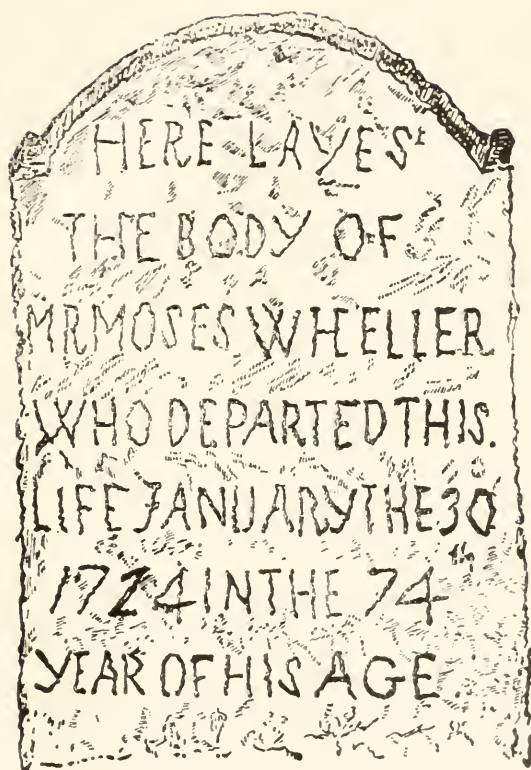 HERE LAYES
THE BODY OF
MR MOSES WHELLER
WHO DEPARTED THIS.
LIFE JANUARY THE 30
1724 IN THE 74th
YEAR OF HIS AGE